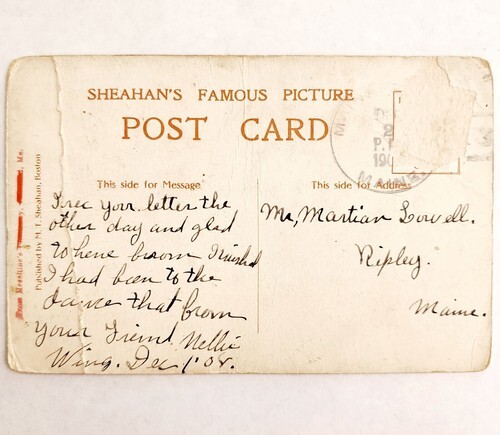 SHEAHAN'S FAMOUS PICTURE
POST CARD
This side for Message
This side for Address
I rec your letter the
other day and glad
to here
I had been to the
dance that
your Friend Nellie
Wing. Dec 1'08.
Mr, Martian Lowell.
Ripley.
Maine.
MAINE
Published by M. T. Sheahan, Boston